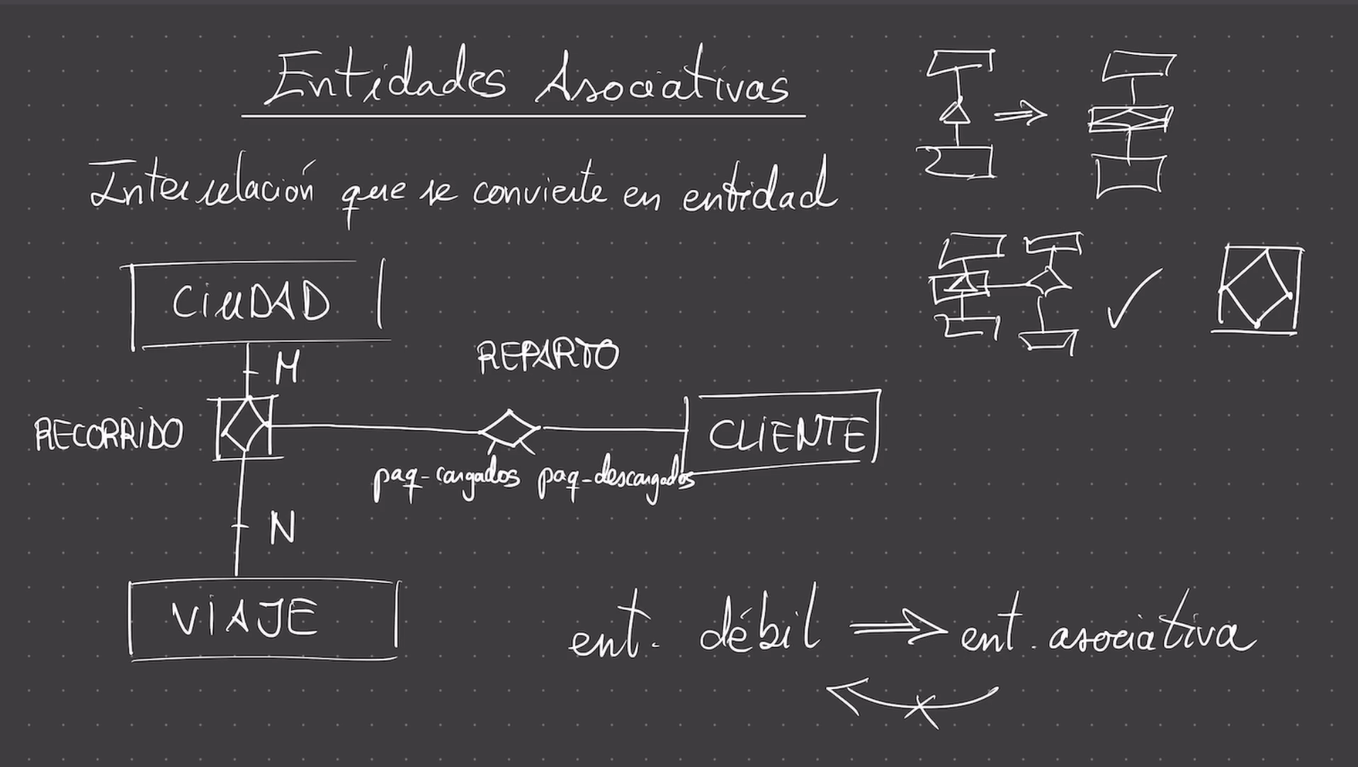 Entidades Asociativas
Interrelación que se convierte en entidad
CiuDAD
M
REPARTO
RECORRIDO
CLIENTE
paq-cargados paq-descargados
N
VIAJE
ent. débil ⇒ ent. asociativa